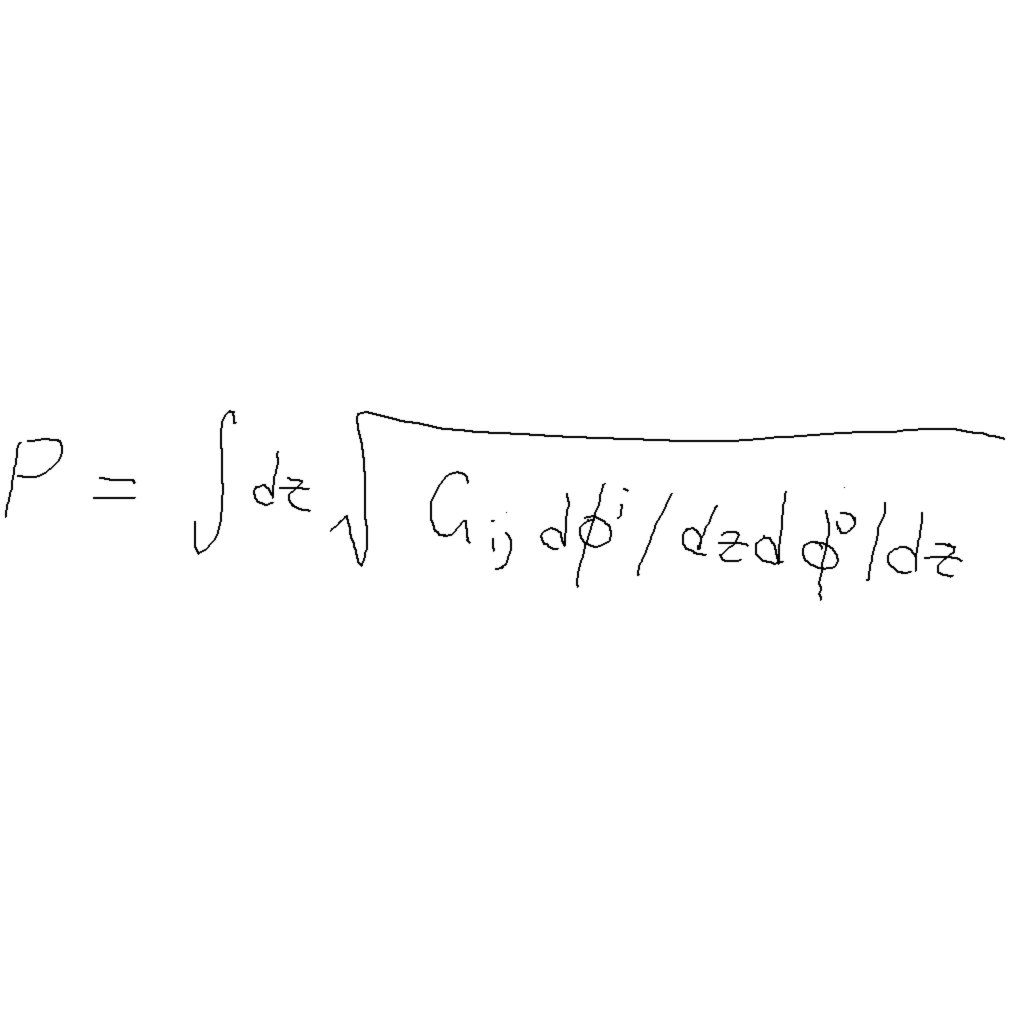 P = ∫ dz √(G_{ij} dϕ^i/dz dϕ^j/dz)